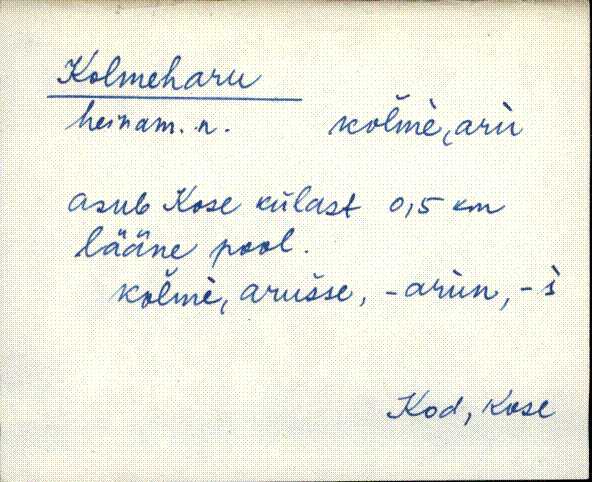 Kolmeharu
heinam. n. kol̆mè‿arù
asub Kose külast 0,5 km
lääne pool.
kol̆mè‿arus̆se, -arùn, -ì
Kod, Kose